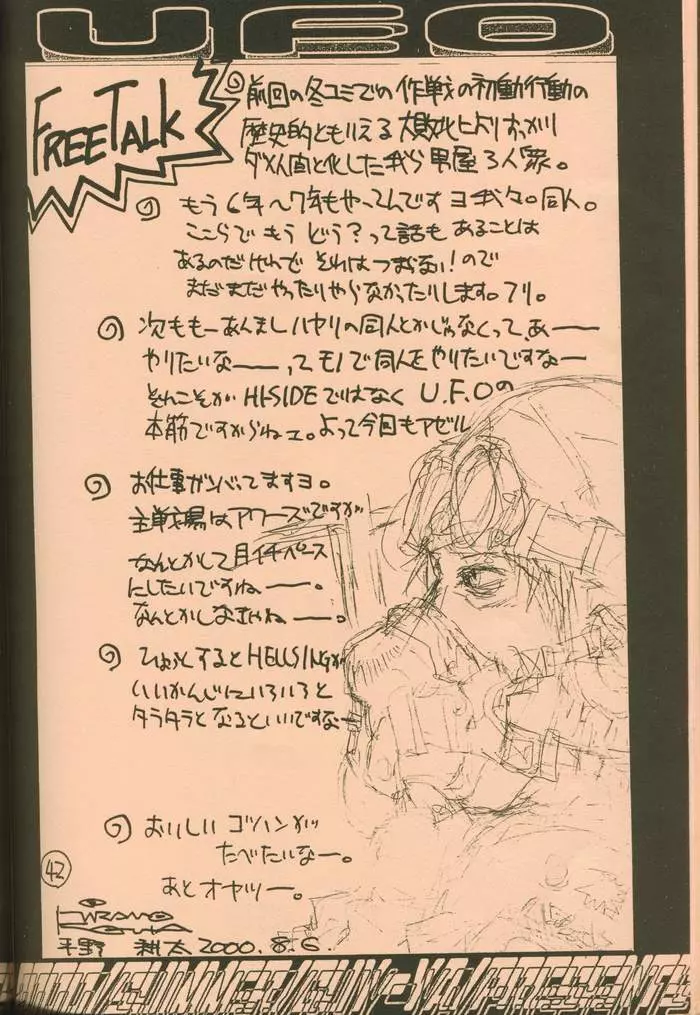 UFO
FREE TALK
前回の冬コミでの作戦の初動行動の
歴史的ともいえる大敗北によりすっかり
ダメ人間と化した我ら男屋3人衆。
もう6年〜7年もやってんですヨ我々。同人。
ここらでもうどう?って話もあることは
あるのだけれど それはつまらない!ので
まだまだやったりやらなかったりします。フリ。
次ももーあんましハヤリの同人とかじゃなくって、あ——
やりたいな——ってモノで同人をやりたいですな—
それこそが HI-SIDEではなく U.F.Oの
本筋ですからねェ。よって今回もアゼル
お仕事ガンバってますヨ。
主戦場はアワーズですが
なんとかして月イチペース
にしたいですね——。
なんとかしなきゃね——。
ひょっとするとHELLSINGが
いいかんじにいろいろと
タラタラとなるといいですな—
おいしいゴハンが
たべたいな—。
あとオヤツ—。
42
HIRANO
KOUTA
平野 耕太 2000. 8. 6.